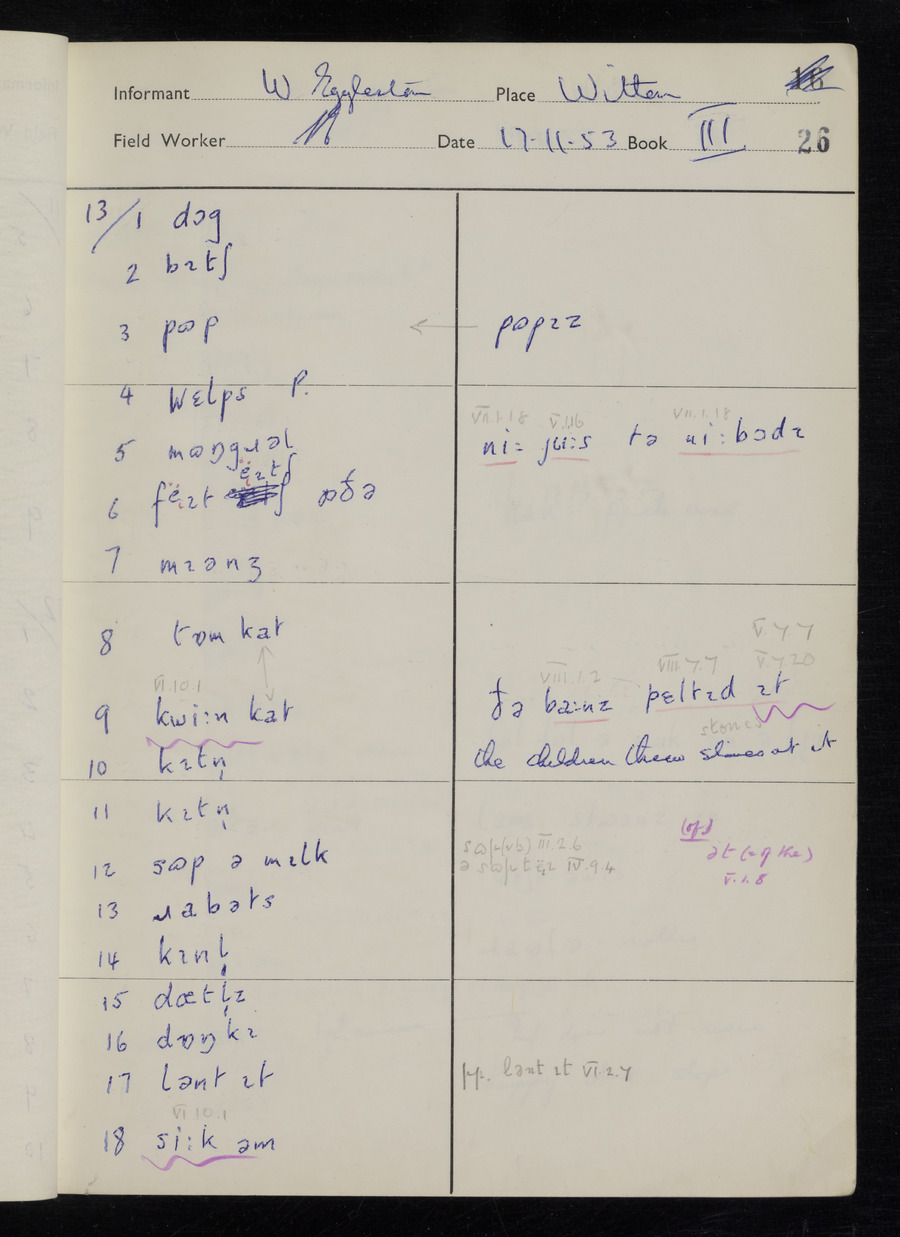 Informant W Eggleston Place Witton
Field Worker Date 17-11-53 Book III 26
13/1 dɔg
2 bɪtʃ
3 pɒp ← pɒpɪz
4 wɛlps p.
VII.1.18 V.1.16 VII.1.18
5 mɒŋgɹəl ni: ju:s tə ni:bɔdɪ
ëɪtʃ
6 fëɪt ɒðə
7 mɪənʒ
8 tɒm kat
V.7.7
VI.10.1 VIII.1.2 VIII.7.7 V.7.20
9 kwi:n kat ðə ba:nz pɛltɪd ɪt
stones
10 kɪtn̩ the children threw stones at it
11 kɪtn̩
(of)
12 sɒp ə mɪlk III.2.6 ət (= of the)
IV.9.4 V.1.8
13 ɹabəts
14 kɪnl̩
15 dætl̩z
16 dɒŋkɪ
17 lənt ɪt pp. lənt ɪt VI.2.7
VI 10.1
18 si:k əm